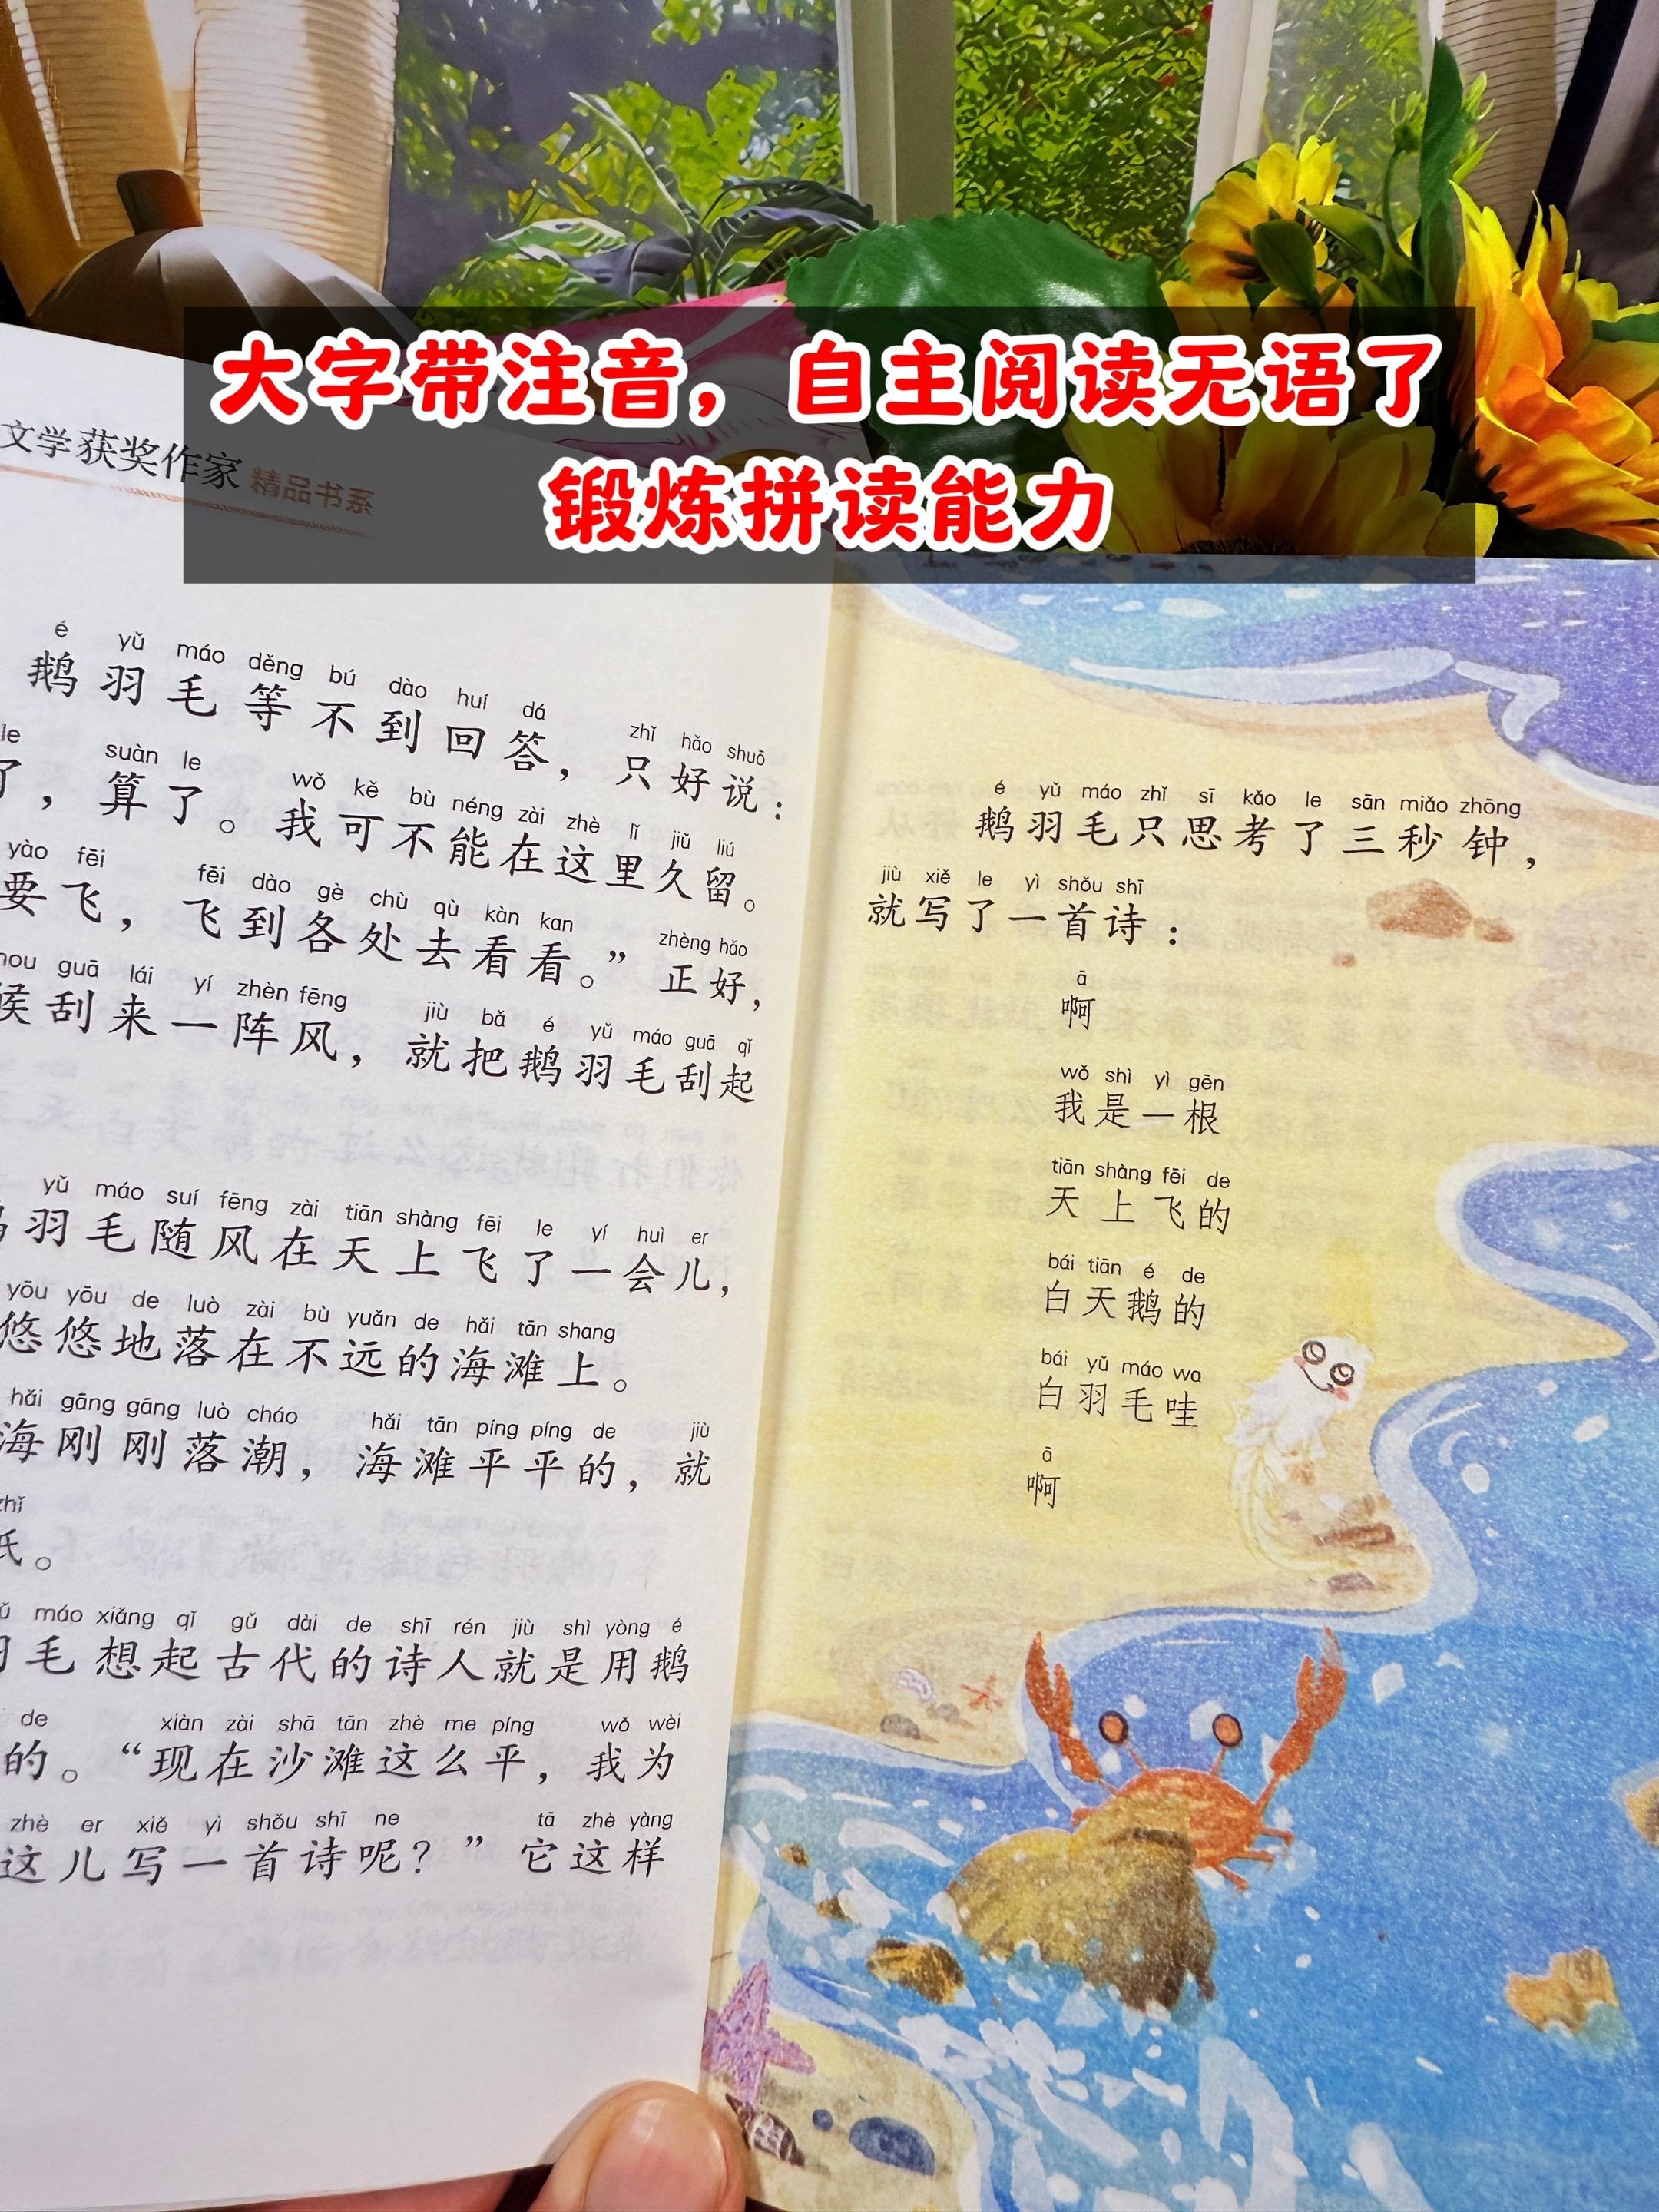 大字带注音，自主阅读无语了
锻炼拼读能力
文学获奖作家 精品书系
é yǔ máo děng bú dào huí dá zhǐ hǎo shuō
鹅羽毛等不到回答，只好说：
le suàn le wǒ kě bù néng zài zhè lǐ jiǔ liú
了，算了。我可不能在这里久留。
yào fēi fēi dào gè chù qù kàn kan zhèng hǎo
要飞，飞到各处去看看。”正好，
hou guā lái yí zhèn fēng jiù bǎ é yǔ máo guā qǐ
候刮来一阵风，就把鹅羽毛刮起
yǔ máo suí fēng zài tiān shàng fēi le yí huì er
羽毛随风在天上飞了一会儿，
yōu yōu de luò zài bù yuǎn de hǎi tān shang
悠悠地落在不远的海滩上。
hǎi gāng gāng luò cháo hǎi tān píng píng de jiù
海刚刚落潮，海滩平平的，就
zhǐ
纸。
máo xiǎng qǐ gǔ dài de shī rén jiù shì yòng é
毛想起古代的诗人就是用鹅
de xiàn zài shā tān zhè me píng wǒ wèi
的。“现在沙滩这么平，我为
zhè er xiě yì shǒu shī ne tā zhè yàng
这儿写一首诗呢？”它这样
é yǔ máo zhǐ sī kǎo le sān miǎo zhōng
鹅羽毛只思考了三秒钟，
jiù xiě le yì shǒu shī
就写了一首诗：
ā
啊
wǒ shì yì gēn
我是一根
tiān shàng fēi de
天上飞的
bái tiān é de
白天鹅的
bái yǔ máo wa
白羽毛哇
ā
啊